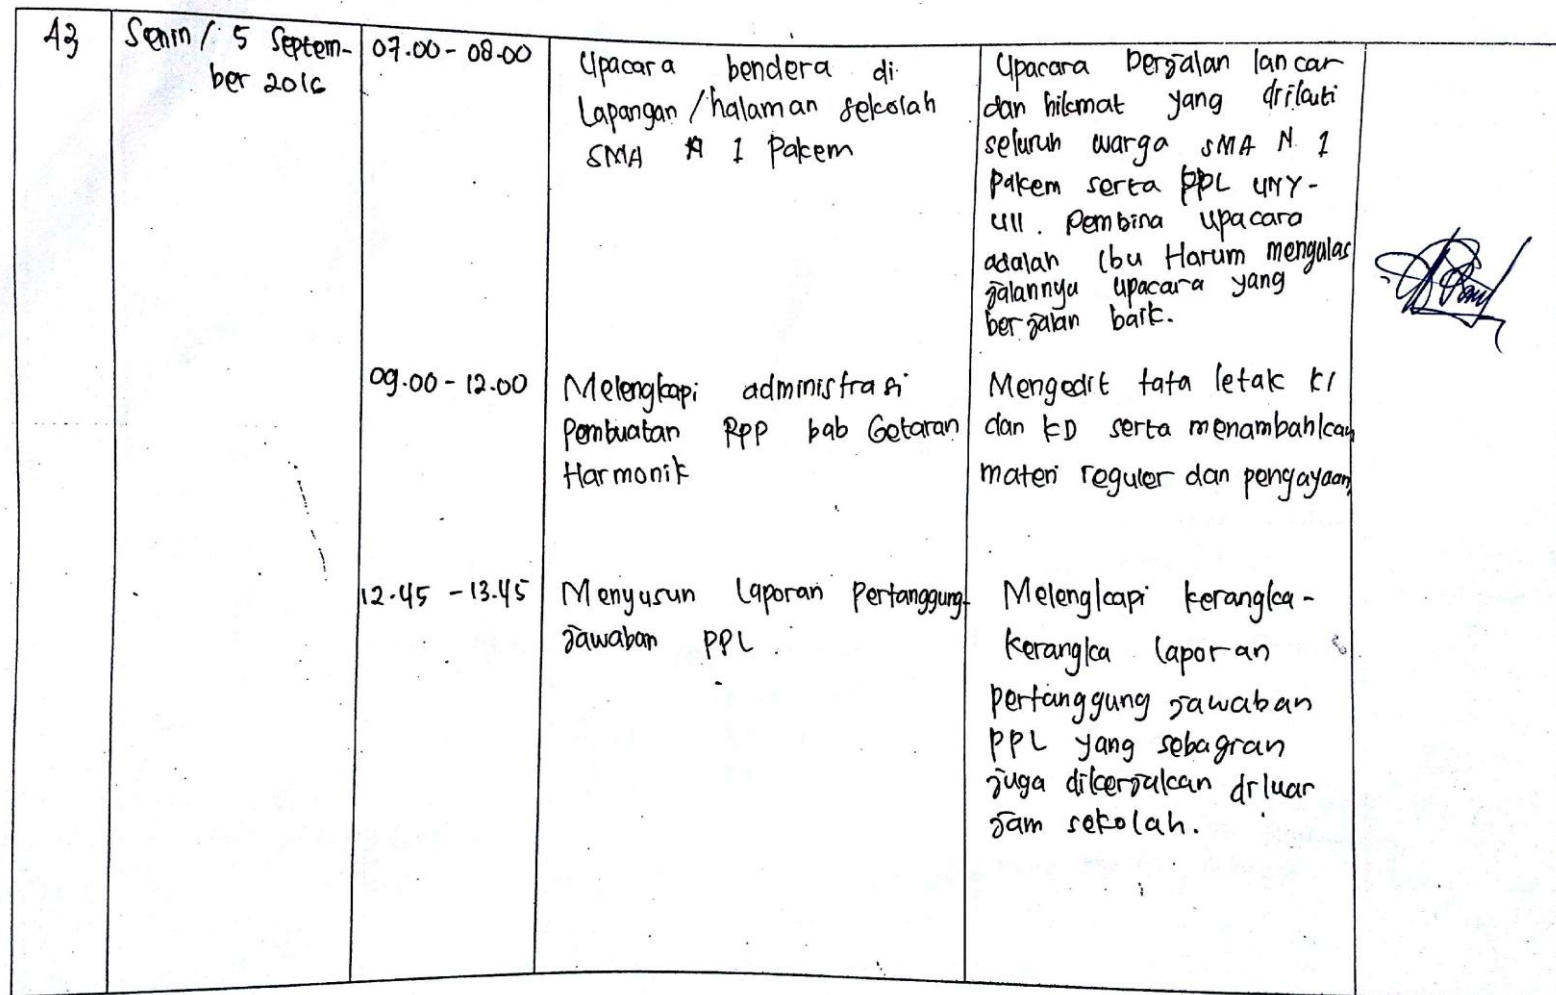 43
Senin / 5 Septem-
ber 2016
07.00 - 08.00
Upacara bendera di
Lapangan / halaman sekolah
SMA N 1 Pakem
Upacara berjalan lancar
dan hikmat yang diikuti
seluruh warga SMA N 1
Pakem serta PPL UNY-
UII. Pembina upacara
adalah Ibu Harum mengulas
jalannya upacara yang
berjalan baik.
09.00 - 12.00
Melengkapi administrasi
Pembuatan RPP bab Getaran
Harmonik
Mengedit tata letak KI
dan KD serta menambahkan
materi reguler dan pengayaan
12.45 - 13.45
Menyusun laporan Pertanggung-
jawaban PPL.
Melengkapi kerangka-
kerangka laporan
pertanggung jawaban
PPL yang sebagian
juga dikerjakan diluar
jam sekolah.